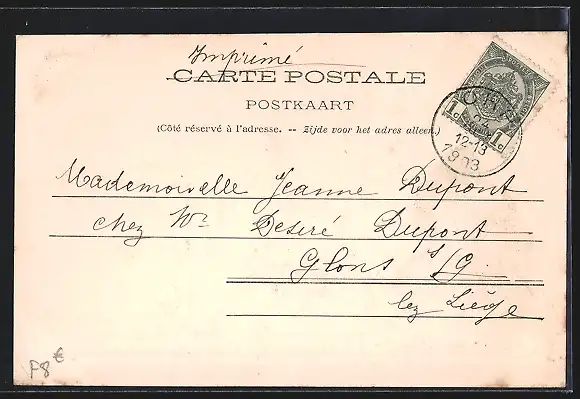 Imprimé
CARTE POSTALE
POSTKAART
(Côté réservé à l'adresse. -- Zijde voor het adres alleen.)
1c 1c
12-13
1903
Mademoiselle Jeanne Dupont
chez Mr Desiré Dupont
Glons s/G.
lez Liége
F8€